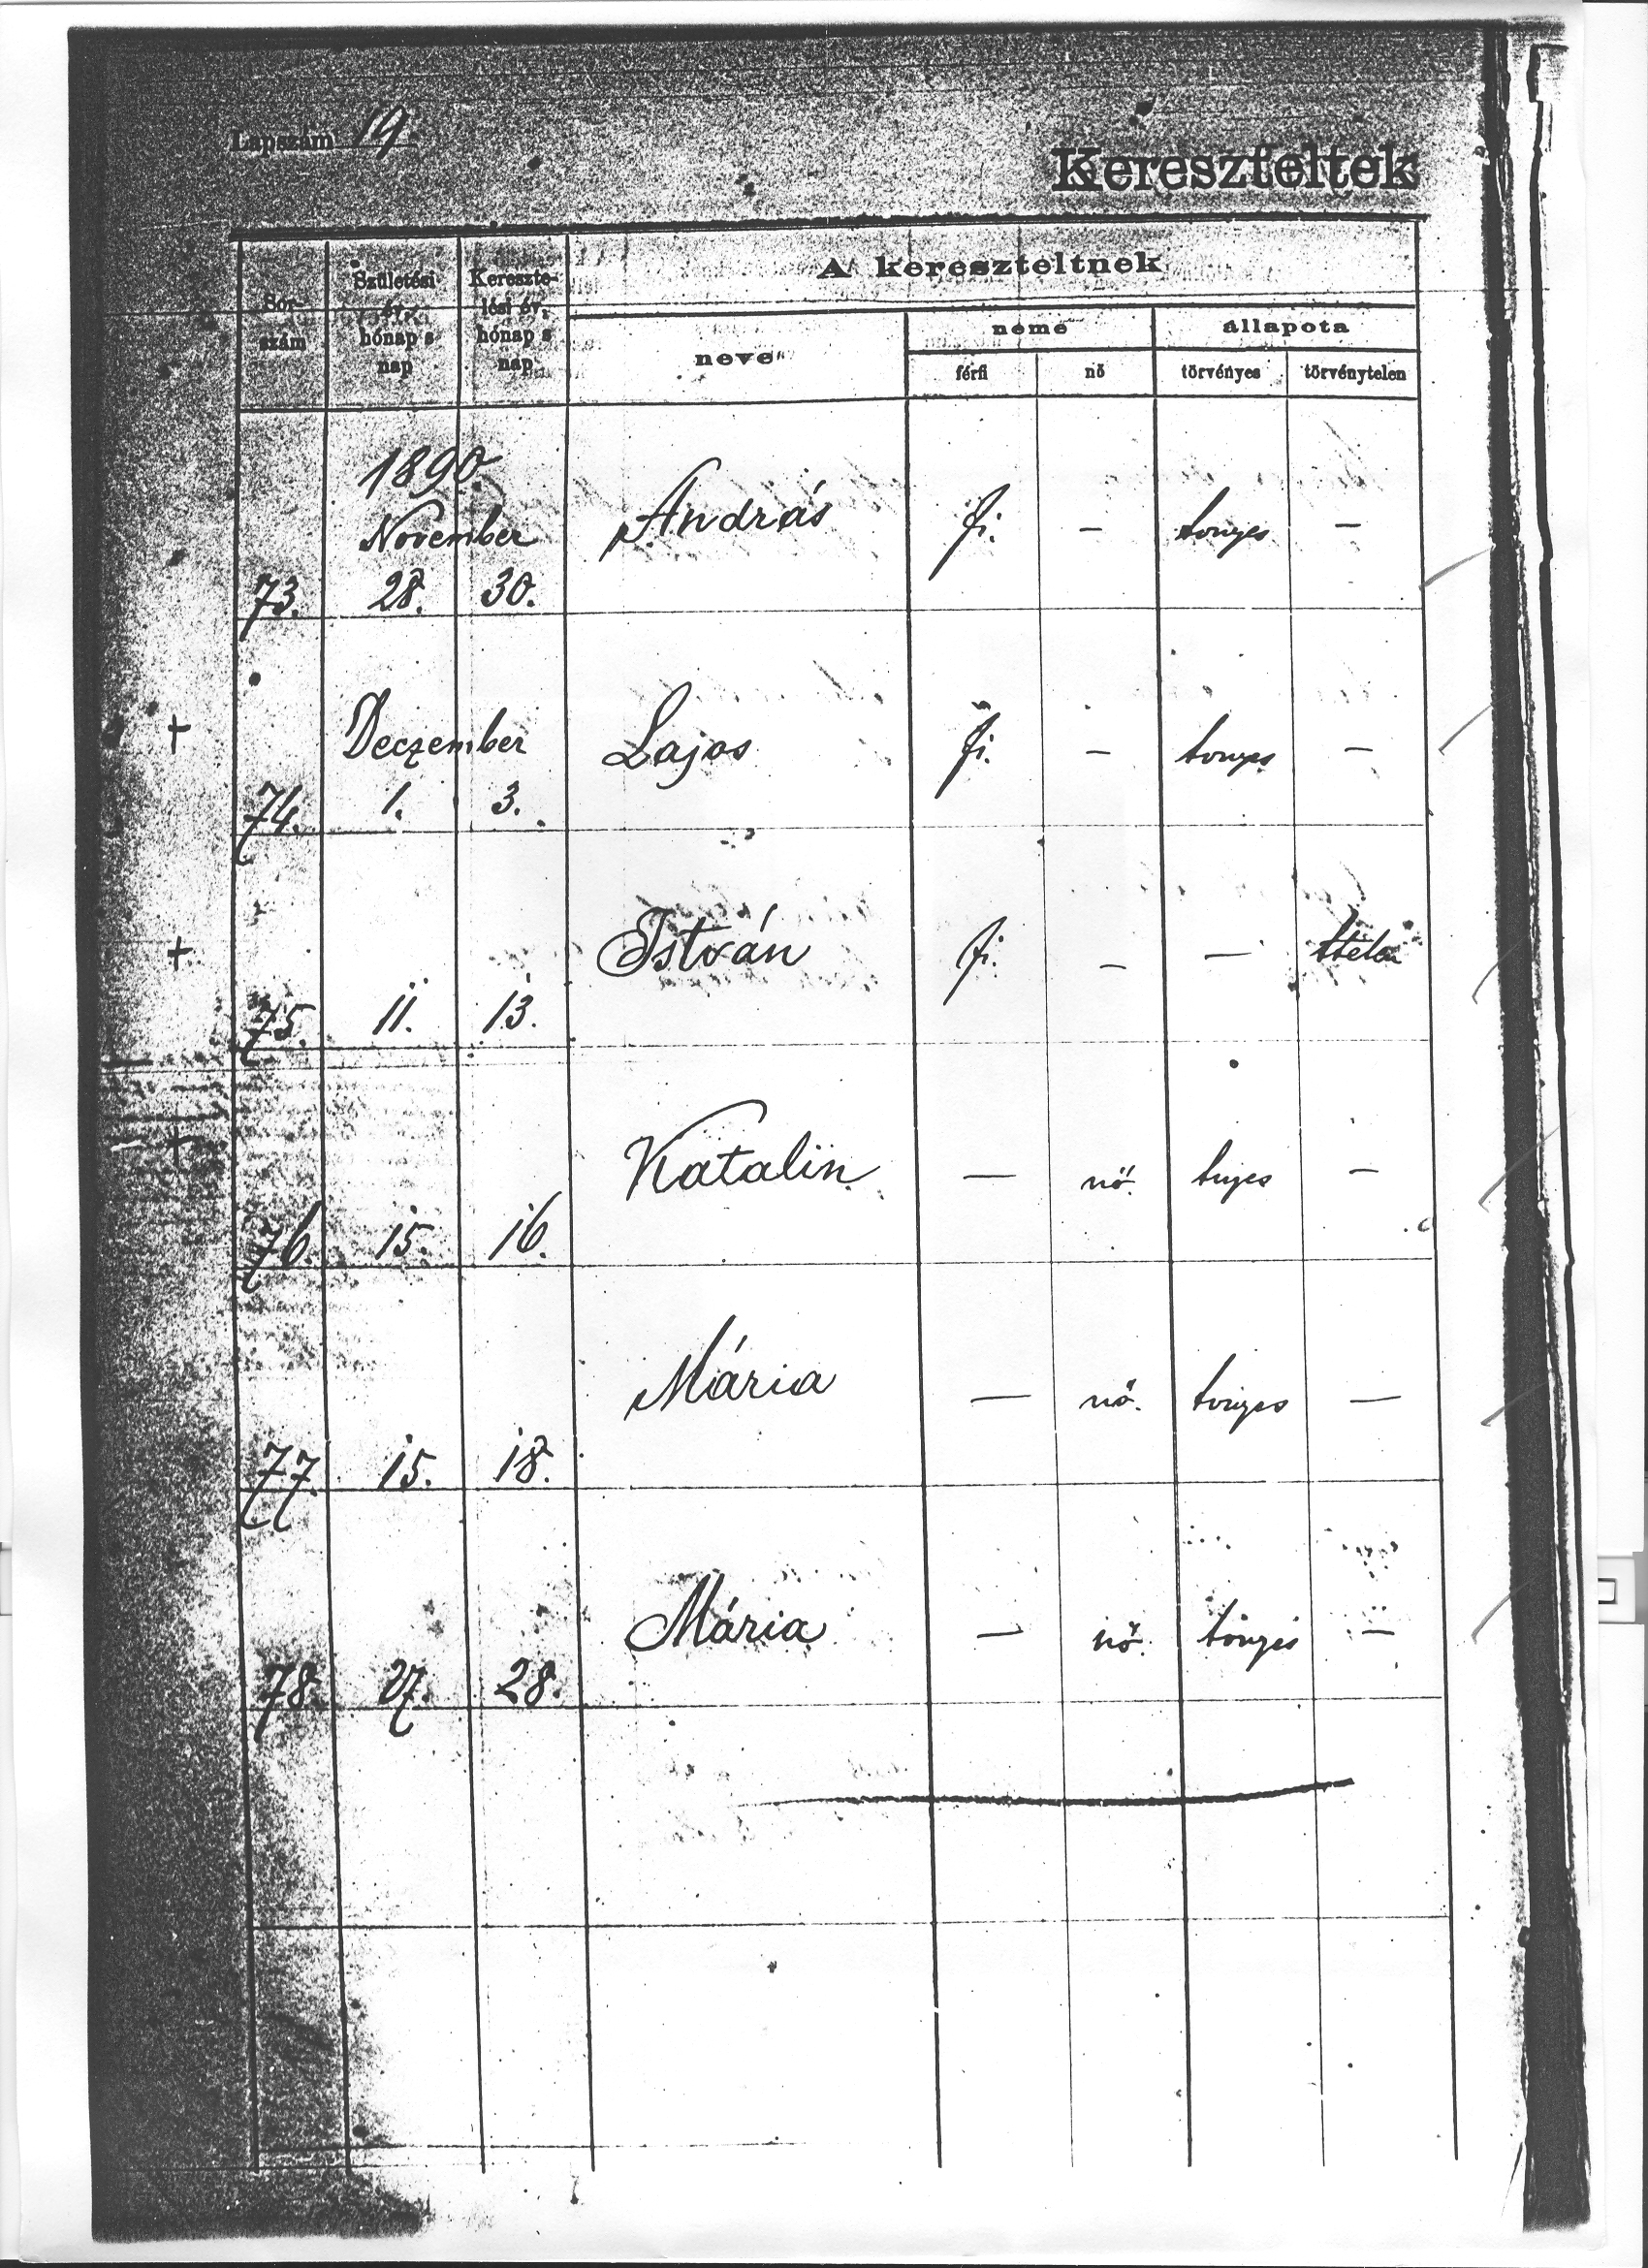 Lapszám 19
Kereszteltek
Sor-
szám
Születési
év,
hónap s
nap
Kereszte-
lési év,
hónap s
nap
A kereszteltnek
neve
neme
állapota
férfi
nő
törvényes
törvénytelen
1890
November
73. 28. 30. András fi. — —
Deczember
74. 1. 3. Lajos fi. — —
75. 11. 13. István fi. — — ttelen
76. 15. 16. Katalin — nő. —
77. 15. 18. Mária — nő. —
78. 27. 28. Mária — nő. —